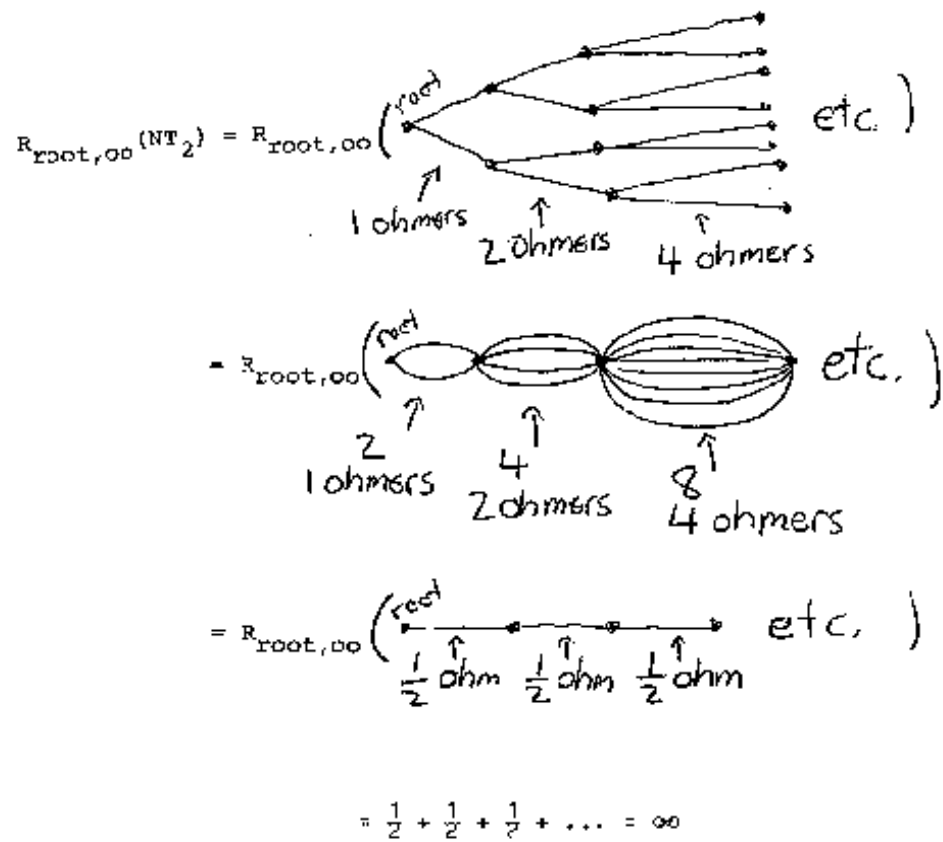 R_root,∞(NT_2) = R_root,∞( root etc. )
1 ohmers
2 ohmers
4 ohmers
= R_root,∞( root etc. )
2
1 ohmers
4
2 ohmers
8
4 ohmers
= R_root,∞( root etc. )
1/2 ohm 1/2 ohm 1/2 ohm
= 1/2 + 1/2 + 1/2 + ... = ∞